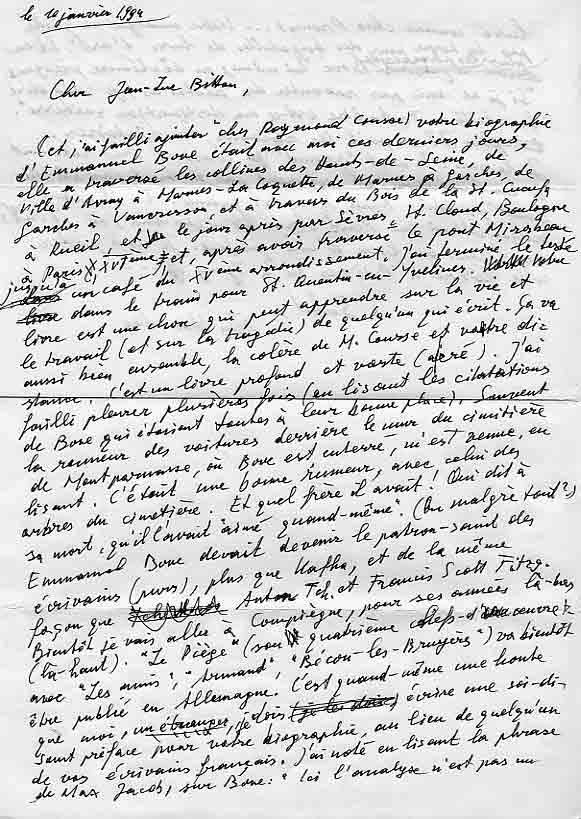 le 10 janvier 1994
Cher Jean-Luc Bitton,
(et, j'ai failli ajouter "cher Raymond Cousse) votre biographie
d'Emmanuel Bove était avec moi ces derniers jours,
elle a traversé les collines des Hauts-de-Seine, de
Ville d'Avray à Marnes-La Coquette, de Marnes à Garches, de
Garches à Vaucresson, et à travers du Bois de la St. Cucufa
à Rueil, et le jour après par Sèvres, St. Cloud, Boulogne
à Paris XVIème, et, après avoir traversé le pont Mirabeau
jusqu'à un café du XVème arrondissement. J'ai terminé le reste
dans le train pour St. Quentin-en-Yvelines. Votre
livre est une chose qui peut apprendre sur la vie et
le travail (et sur la tragédie) de quelqu'un qui écrit. Ça va
aussi bien ensemble, la colère de M. Cousse et votre dis
stance. C'est un livre profond et vaste (aéré). J'ai
failli pleurer plusieurs fois (en lisant les citatations
de Bove qui étaient toutes à leur bonne place). Souvent
la rumeur des voitures derrière le mur du cimitière
de Montparnasse, où Bove est enterré, m'est venue, en
lisant. C'était une bonne rumeur, avec celui des
arbres du cimetière. Et quel frère il avait! Qui dit à
sa mort, qu'il l'avait "aimé quand-même". (Ou malgré tout?)
Emmanuel Bove devait devenir le patron-saint des
écrivains (purs), plus que Kafka, et de la même
façon que Anton Tch. et Francis Scott Fitzg.
Bientôt je vais aller à Compiègne, pour ses années là-bas
(là-haut). "Le Piège" (son quatrième chef-d'œuvre
avec "Les amis", "Armand", "Bécon-les-Bruyères") va bientôt
être publié en Allemagne. C'est quand-même une honte
que moi, un étranger, je dois écrire une soi-di-
sant préface pour votre biographie, au lieu de quelqu'un
de vos écrivains français. J'ai noté en lisant la phrase
de Max Jacob, sur Bove: "Ici l'analyse n'est pas un